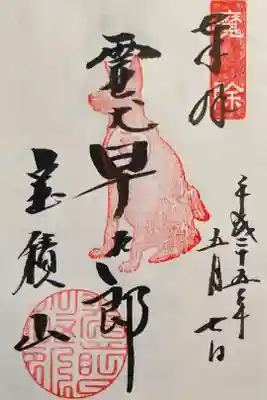 魔除
奉拝
平成二十五年
五月七日
霊犬早太郎
宝積山